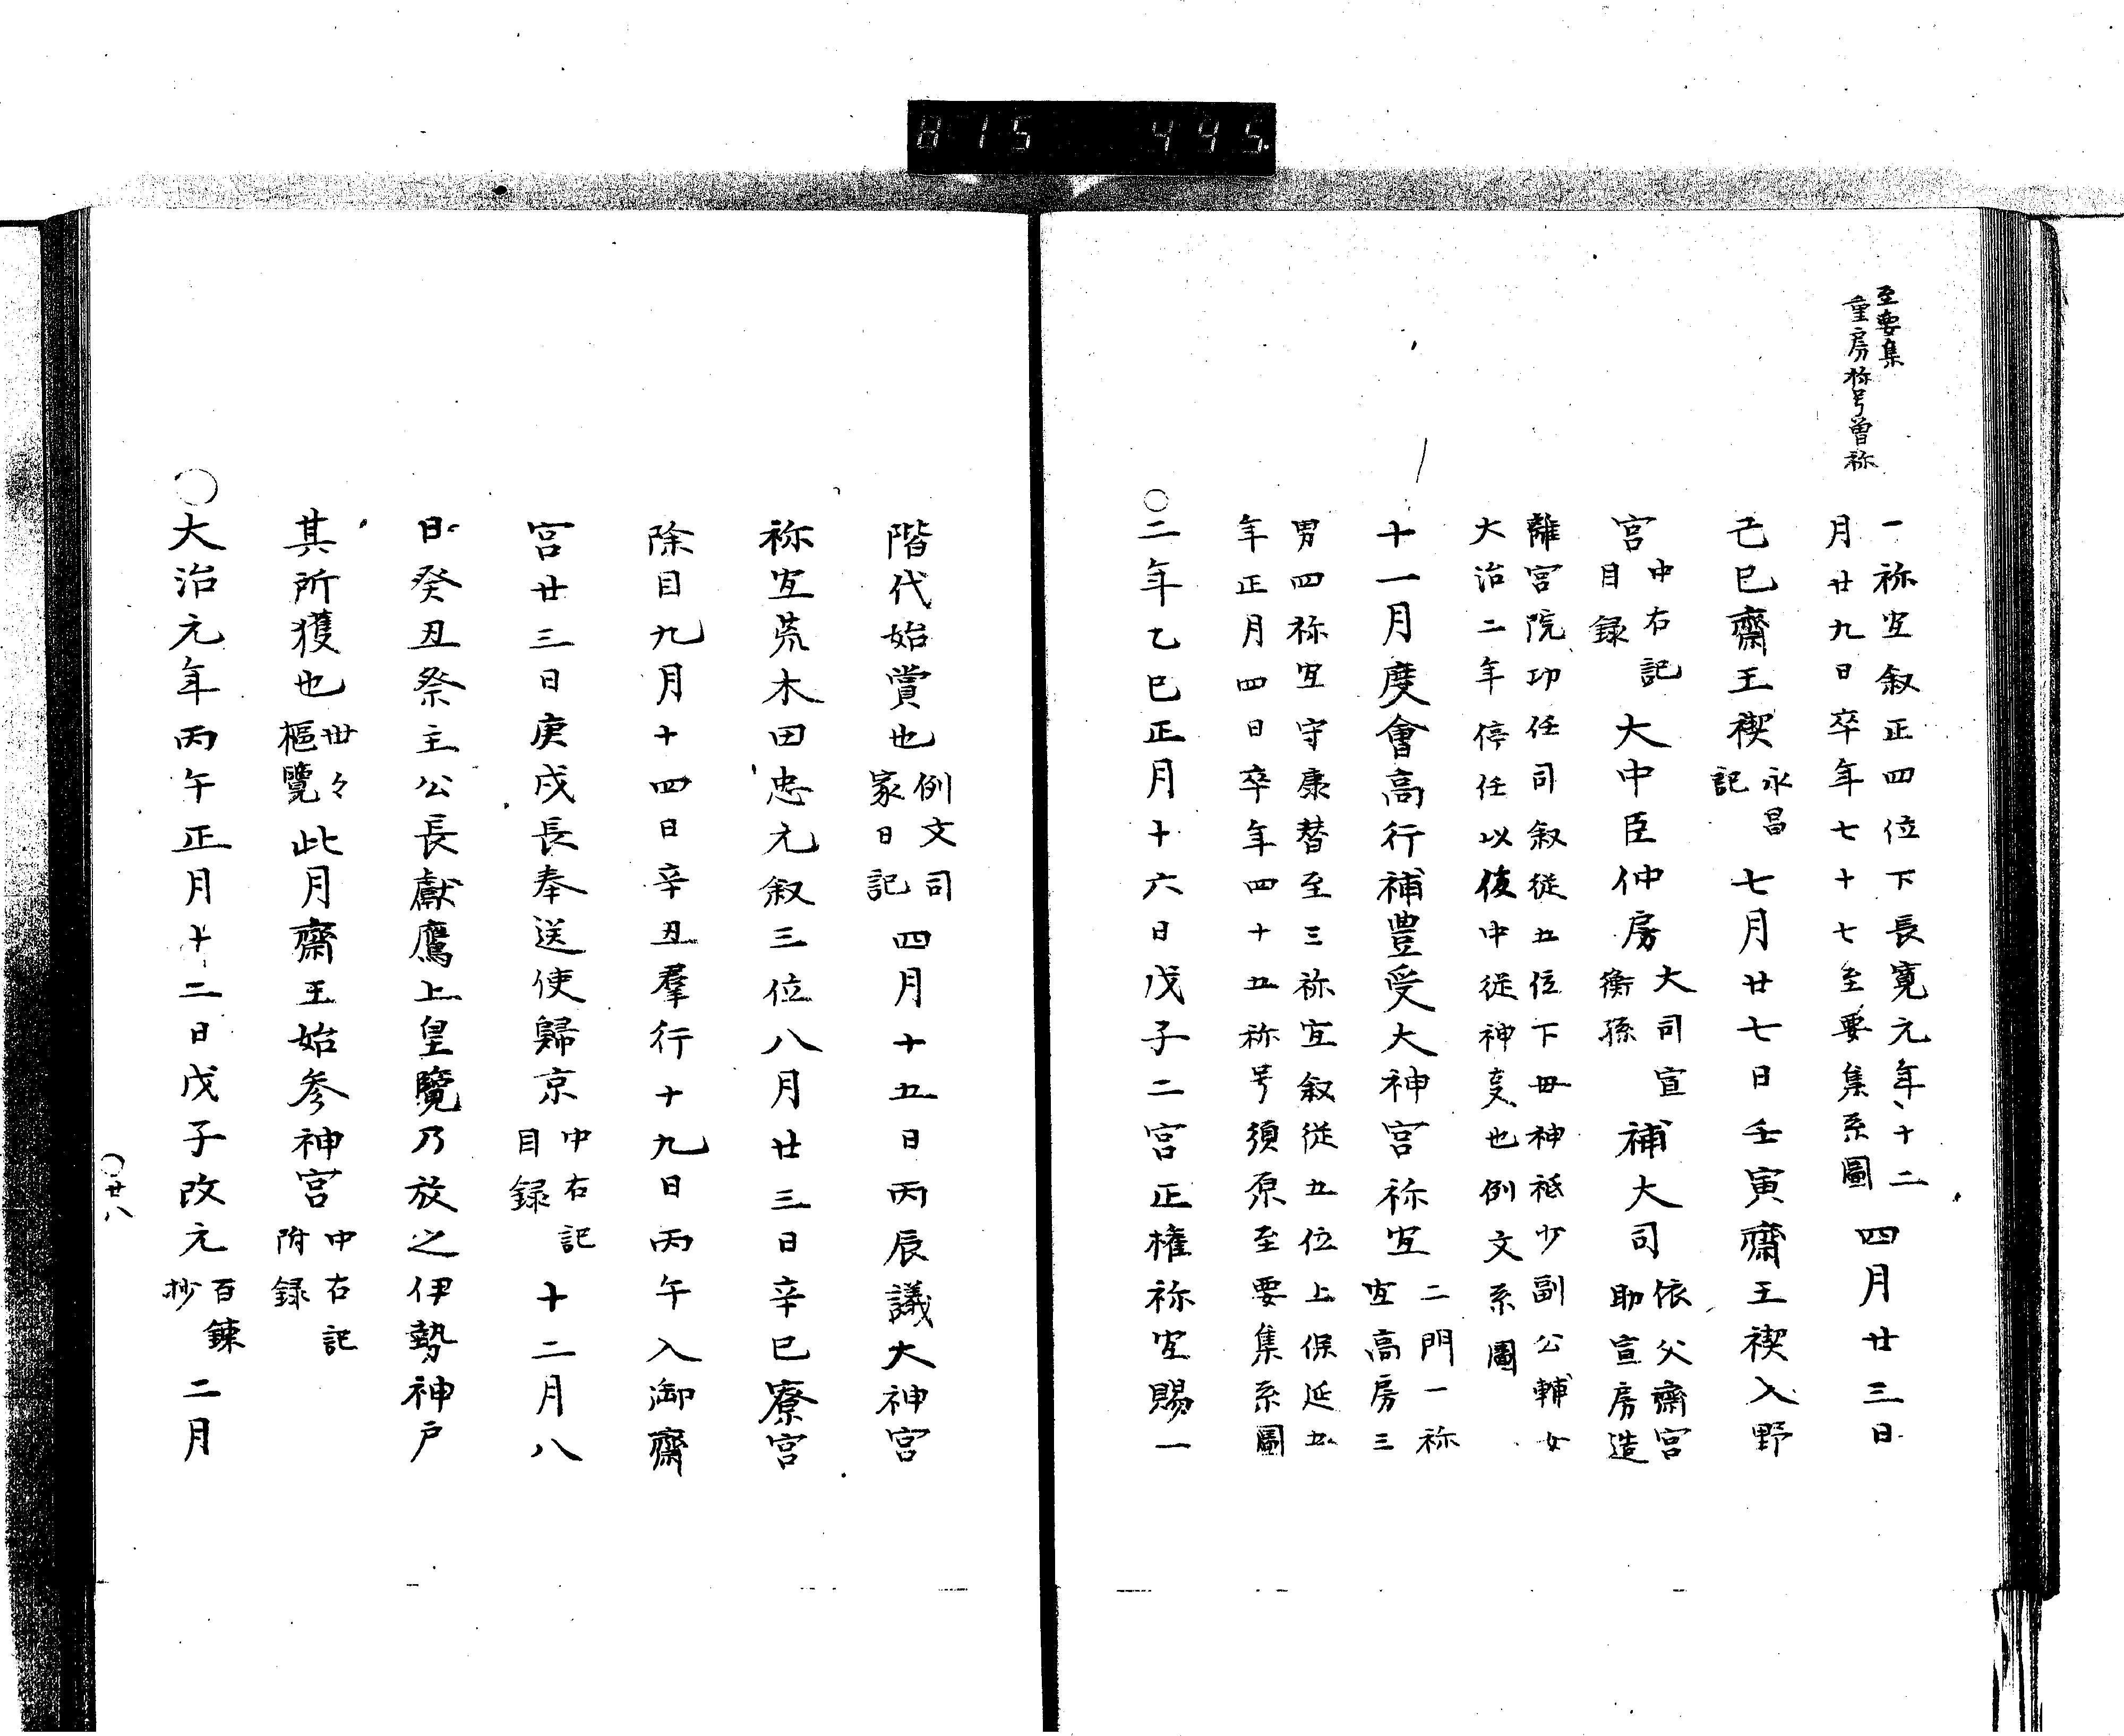 815 445
至要集
重房祢号曽祢
一祢冝叙正四位下長寛元年十二
月廿九日卒年七十七至要集系圖
四月廿三日
己巳齋王禊
永昌
記
七月廿七日壬寅齋王禊入野
宮
中右記
目録
大中臣仲房
大司宣
衡孫
補大司
依父齋宮
助宣房造
離宮院功任司叙従五位下毋神祇少副公輔女
大治二年停任以後中従神㕝也例文系圖
十一月度會高行補豊受大神宮祢冝
二門一祢
冝高房三
男四祢冝守康替至三祢冝叙従五位上保延五
年正月四日卒年四十五称号須原至要集系圖
○二年乙巳正月十六日戊子二宮正権祢冝賜一
階代始賞也
例文司
家日記
四月十五日丙辰議大神宮
祢冝荒木田忠元叙三位八月廿三日辛巳寮宮
除目九月十四日辛丑羣行十九日丙午入御齋
宮廿三日庚戌長奉送使歸京
中右記
目録
十二月八
日癸丑祭主公長獻鷹上皇覽乃放之伊勢神戸
其所獲也
丗々
樞覽
此月齋王始参神宮
中右記
附録
○大治元年丙午正月十二日戊子改元
百鍊
抄
二月
○廿八